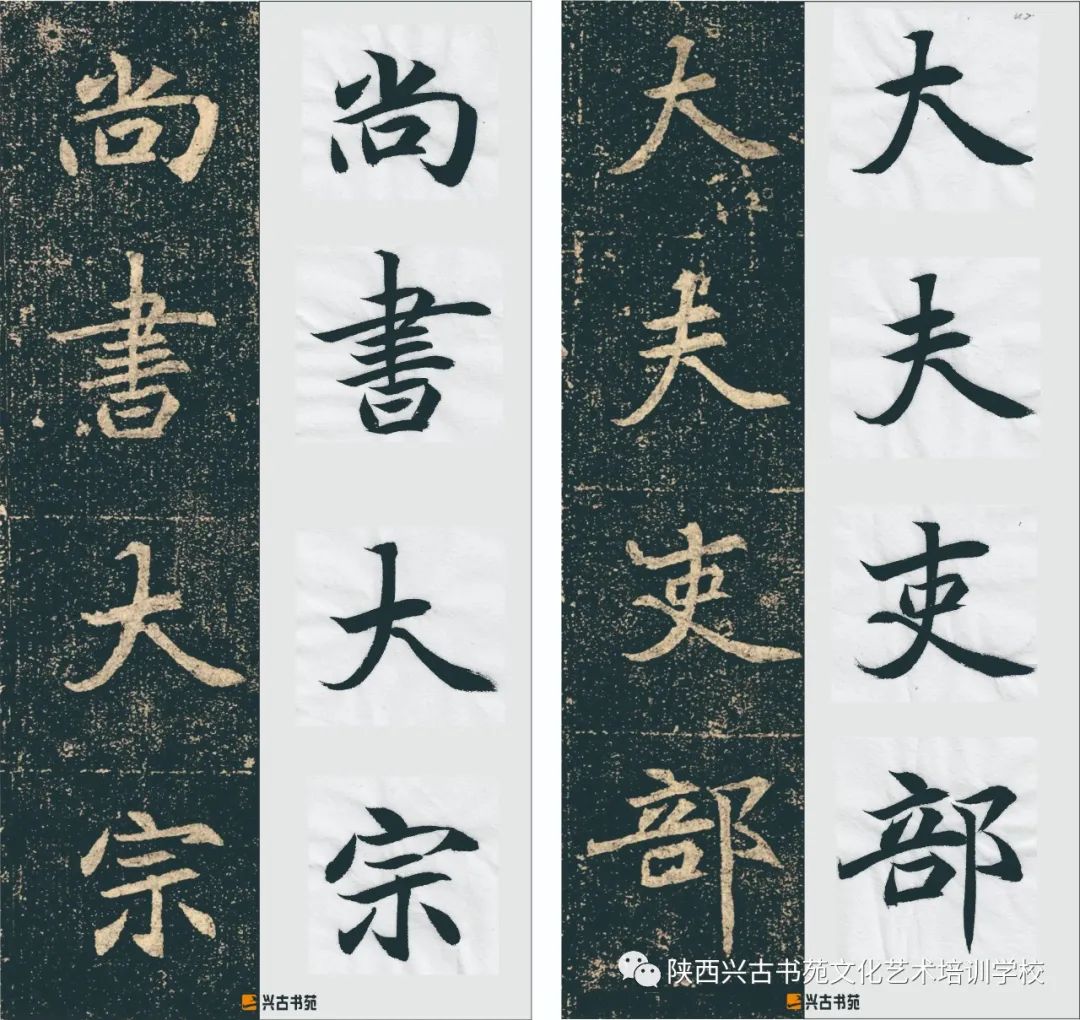 尚書大宗
尚書大宗
兴古书苑
大夫吏部
大夫吏部
陕西兴古书苑文化艺术培训学校
兴古书苑